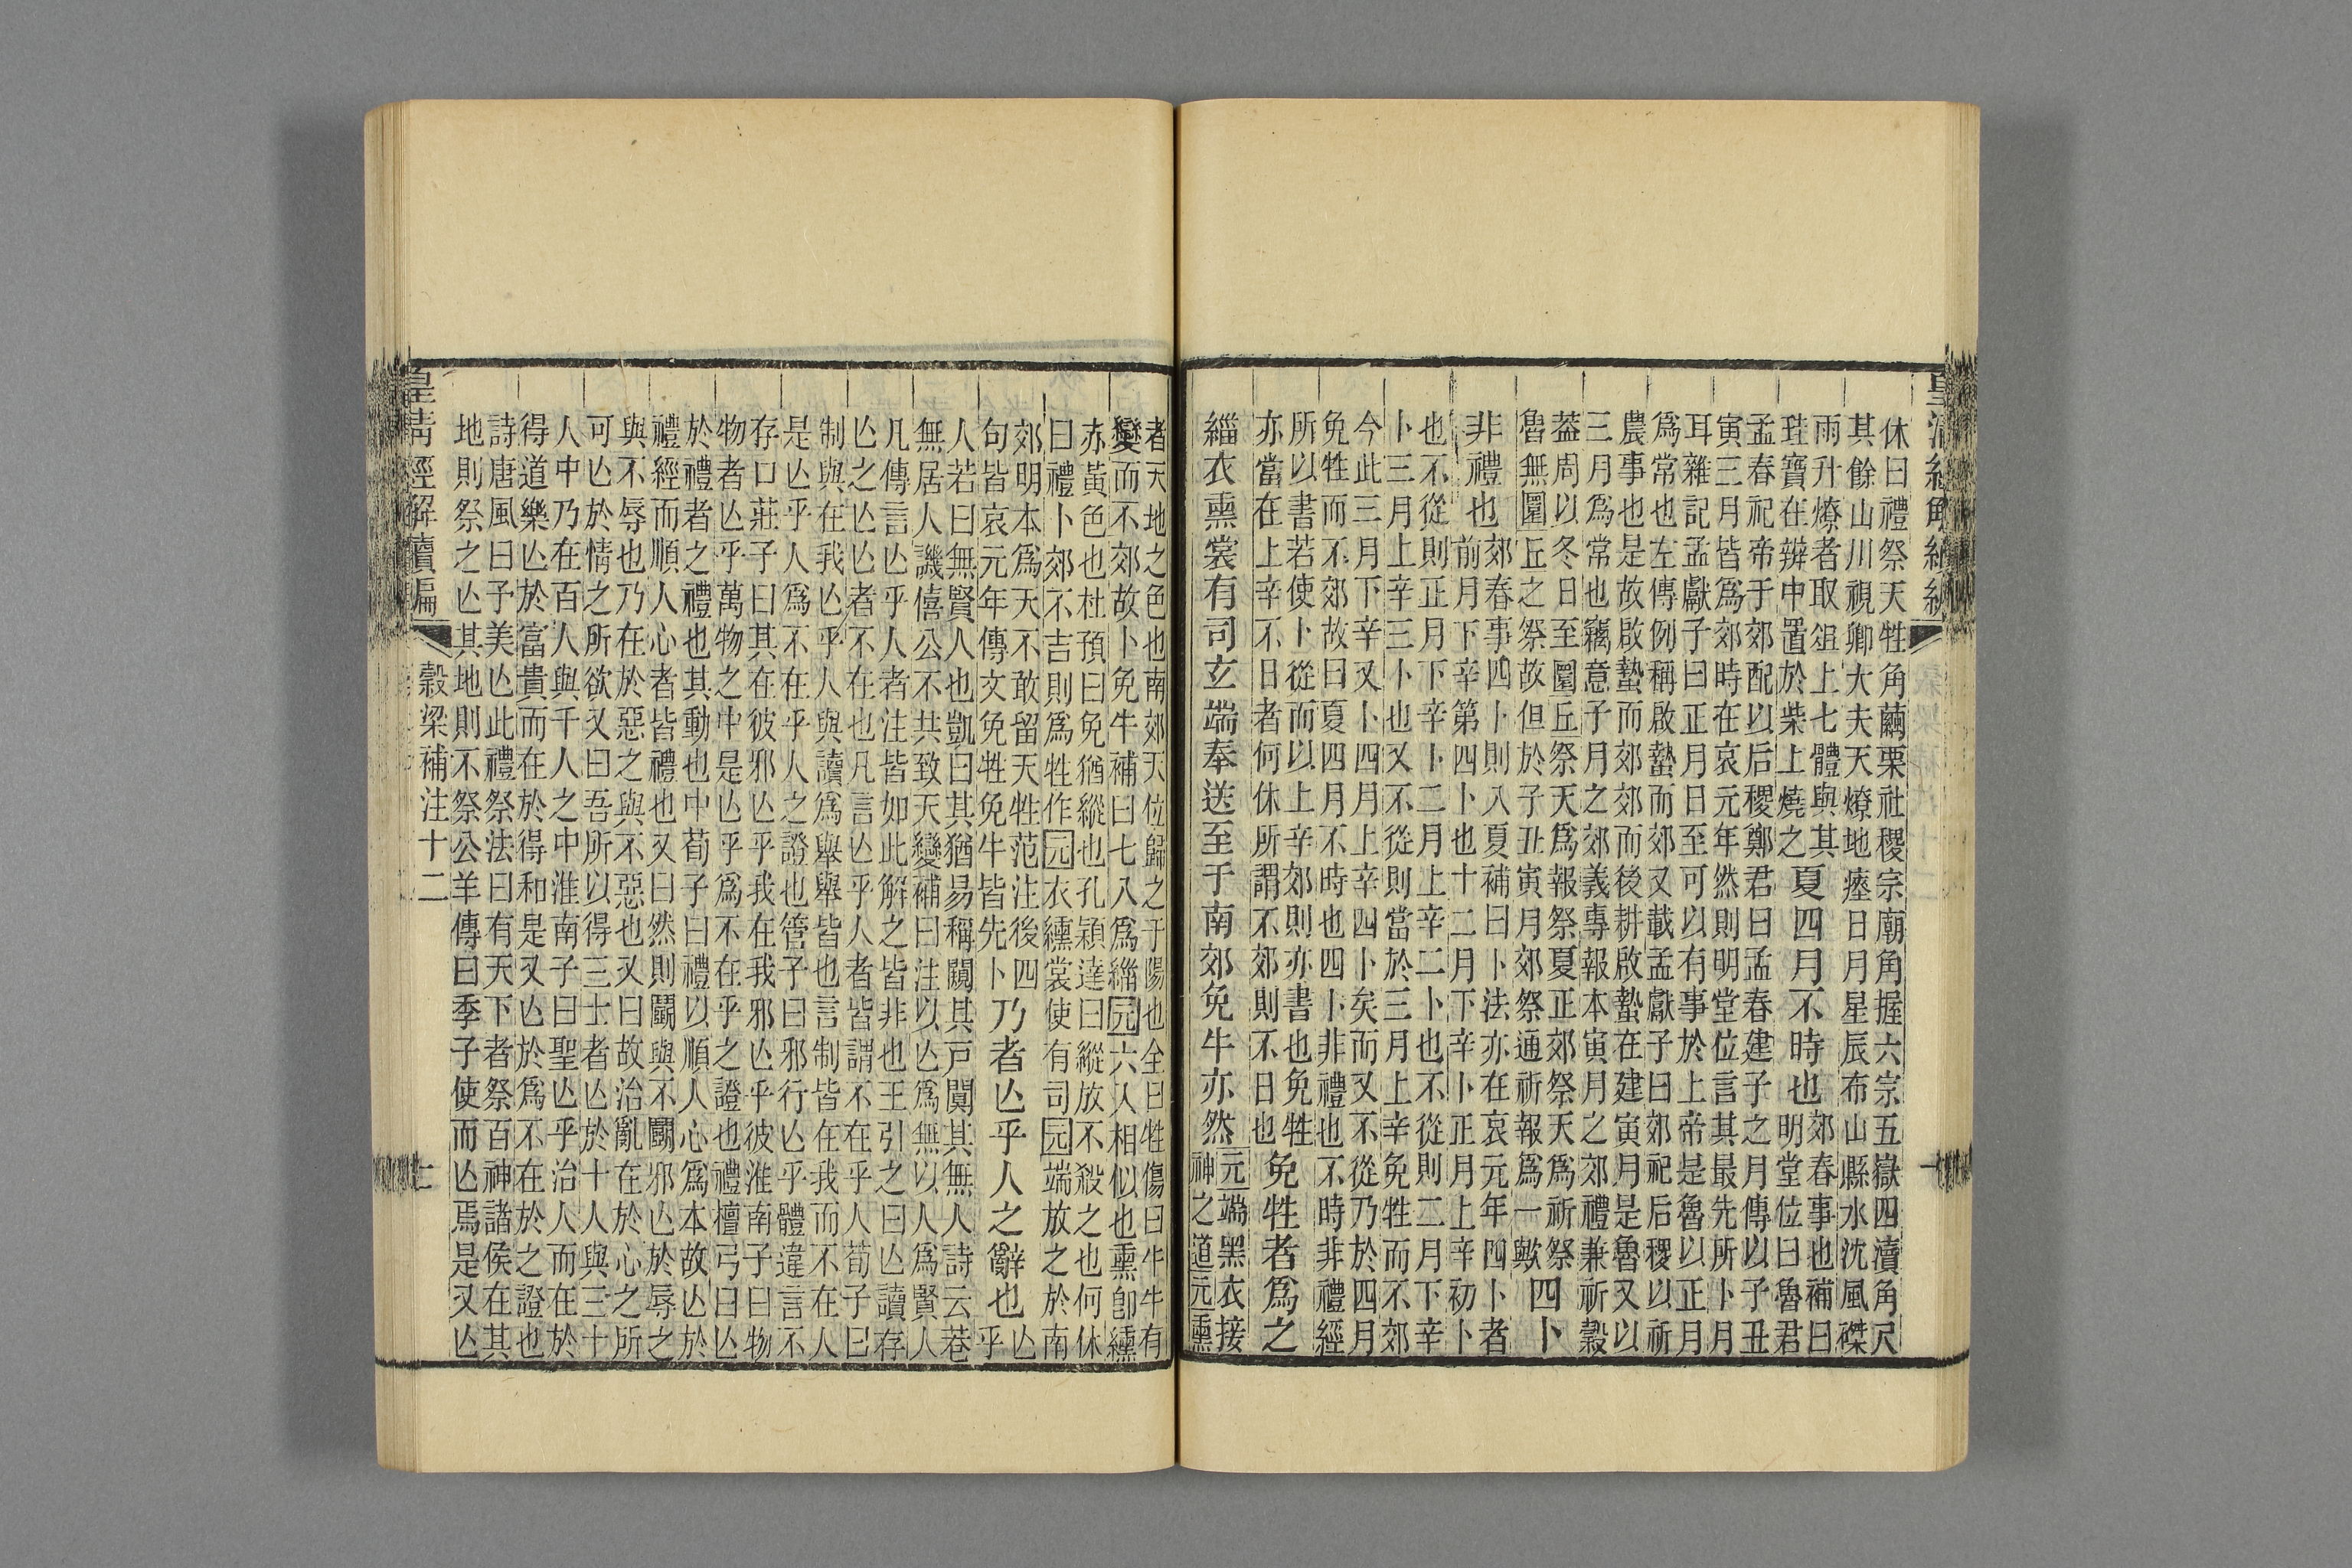 皇清經解續編
休曰禮祭天牲角繭栗社稷宗廟角握六宗五嶽四瀆角尺
其餘山川視卿大夫天燎地瘞日月星辰布山縣水沈風磔
雨升燎者取俎上七體與其
珪寶在辨中置於柴上燒之
夏四月不時也
郊春事也補曰
明堂位曰魯君
孟春祀帝于郊配以后稷鄭君曰孟春建子之月傳以子丑
寅三月皆爲郊時在哀元年然則明堂位言其最先所卜月
耳雜記孟獻子曰正月日至可以有事於上帝是魯以正月
爲常也左傳例稱啟蟄而郊又載孟獻子曰郊祀后稷以祈
農事也是故啟蟄而郊郊而後耕啟蟄在建寅月是魯又以
三月爲常也竊意子月之郊義專報本寅月之郊禮兼祈穀
葢周以冬日至圜丘祭天爲報祭夏正郊祭天爲祈祭
魯無圜丘之祭故但於子丑寅月郊祭通祈報爲一歟
四卜
非禮也
郊春事四卜則入夏補曰卜法亦在哀元年四卜者
前月下辛第四卜也十二月下辛卜正月上辛初卜
也不從則正月下辛卜二月上辛二卜也不從則二月下辛
卜三月上辛三卜也又不從則當於三月上辛免牲而不郊
今此三月下辛又卜四月上辛四卜矣而又不從乃於四月
免牲而不郊故曰夏四月不時也四卜非禮也不時非禮經
所以書若使卜從而以上辛郊則亦書也免牲
亦當在上辛不日者何休所謂不郊則不日也
免牲者爲之
緇衣熏裳有司玄端奉送至于南郊免牛亦然
元端黑衣接
神之道元熏
者天地之色也南郊天位歸之于陽也全曰牲傷曰牛牛有
變而不郊故卜免牛補曰七入爲緇元六入相似也熏卽纁
赤黃色也杜預曰免猶縱也孔穎達曰縱放不殺之也何休
曰禮卜郊不吉則爲牲作元衣纁裳使有司元端放之於南
郊明本爲天不敢留天牲范注後四
句皆哀元年傳文免牲免牛皆先卜
乃者亾乎人之辭也
亾
乎
人若曰無賢人也凱曰其猶易稱闚其戸闃其無人詩云巷
無居人譏僖公不共致天變補曰注以亾爲無以人爲賢人
凡傳言亾乎人者注皆如此解之皆非也王引之曰亾讀存
亾之亾亾者不在也凡言亾乎人者皆謂不在乎人荀子曰
制與在我亾乎人與讀爲舉舉皆也言制皆在我而不在人
是亾乎人爲不在乎人之證也管子曰邪行亾乎體違言不
存口莊子曰其在彼邪亾乎我在我邪亾乎彼淮南子曰物
物者亾乎萬物之中是亾乎爲不在乎之證也禮檀弓曰亾
於禮者之禮也其動也中荀子曰禮以順人心爲本故亾於
禮經而順人心者皆禮也又曰然則鬭與不鬭邪亾於辱之
與不辱也乃在於惡之與不惡也又曰故治亂在於心之所
可亾於情之所欲又曰吾所以得三士者亾於十人與三十
人中乃在百人與千人之中淮南子曰聖亾乎治人而在於
得道樂亾於富貴而在於得和是又亾於爲不在於之證也
詩唐風曰予美亾此禮祭法曰有天下者祭百神諸侯在其
地則祭之亾其地則不祭公羊傳曰季子使而亾焉是又亾
皇清經解續編
穀梁補注十二